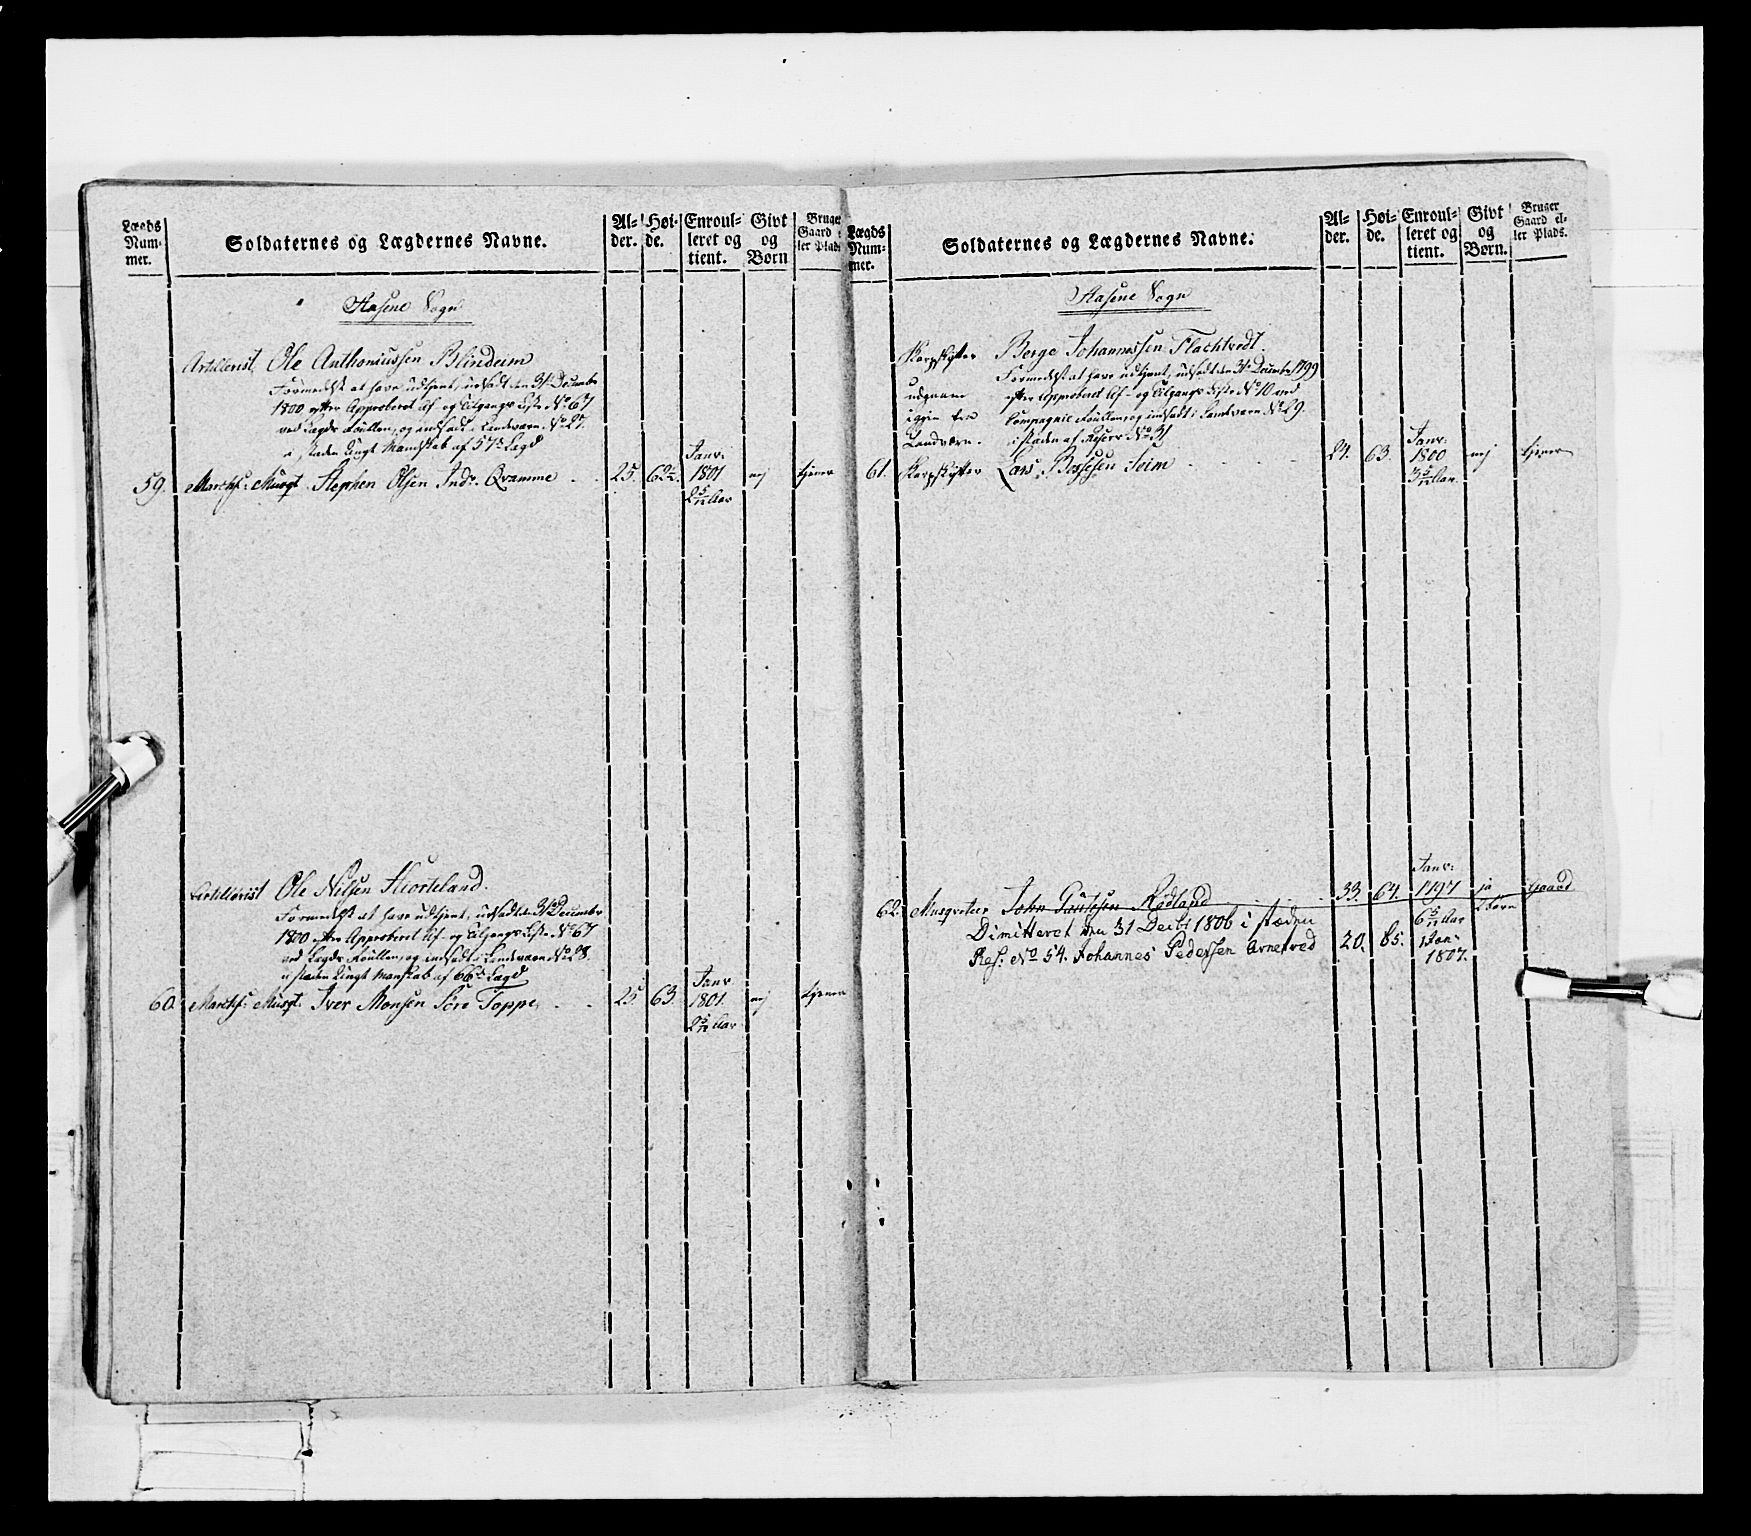 Lægds Num- mer.
Soldaternes og Lægdernes Navne.
Al- der.
Høi- de.
Enroul- leret og tient.
Givt og Børn
Bruger Gaard el- ler Plads.
Aasene Sogn
Artillerist Ole Anthoniussen Blindeim
Formedelst at have udtient, udsadt den 31te Decembr
1800 efter Approberet Af- og Tilgangs Liste No 67
ved Lægds Roullen, og indsadt i Landværn No 27.
i staden Lingt Mandskab af 57de Lægd
59. Marchf: Musqt. Stephen Olsen Indr. Qvamme 25. 62½. Janr: 1801 nej tjener
2 5/12 Aar
Artillerist Ole Nilsen Hiorteland.
Formedelst at have udtient, udsadt den 31te Decembr
1800 efter Approberet Af- og Tilgangs Liste No 67
ved Lægds Roullen, og indsadt i Landeværn No 28.
i staden Lingt Manskab af 66de Lægd
60. Marchf: Musqt. Iver Monsen Søre Toppe 25 63. Janr 1801. nej tjener
2 5/12 Aar
Lægds Num- mer.
Soldaternes og Lægdernes Navne.
Al- der.
Høi- de.
Enroul- leret og tient.
Givt og Børn.
Bruger Gaard el- ler Plads.
Aasene Sogn
Skarpskytter Berge Johannessen Flachtvedt.
Formedelst at have udtient, udsadt den 31te Decembr 1799
udgaaen efter Approberet Af- og Tilgangs Liste No 70 ved
igjen til Compagnie Roullen, og indsadt i Landværn No 29.
Landværn. i staden af Reserv No 31
61. Skarpskytter Lars Bessesen Seim 24. 63 Janr: 1800 nej tjener
3 5/12 Aar.
62. Musqveteer John Gautesen Rødland 33. 64. Janr: 1797 ja Gaard
2 børn
Dimitteret den 31 Decbr 1806 i stæden 6 5/12 Aar
Res. No 54. Johannes Pedersen Arnetved 20. 65. Jan: 1807.